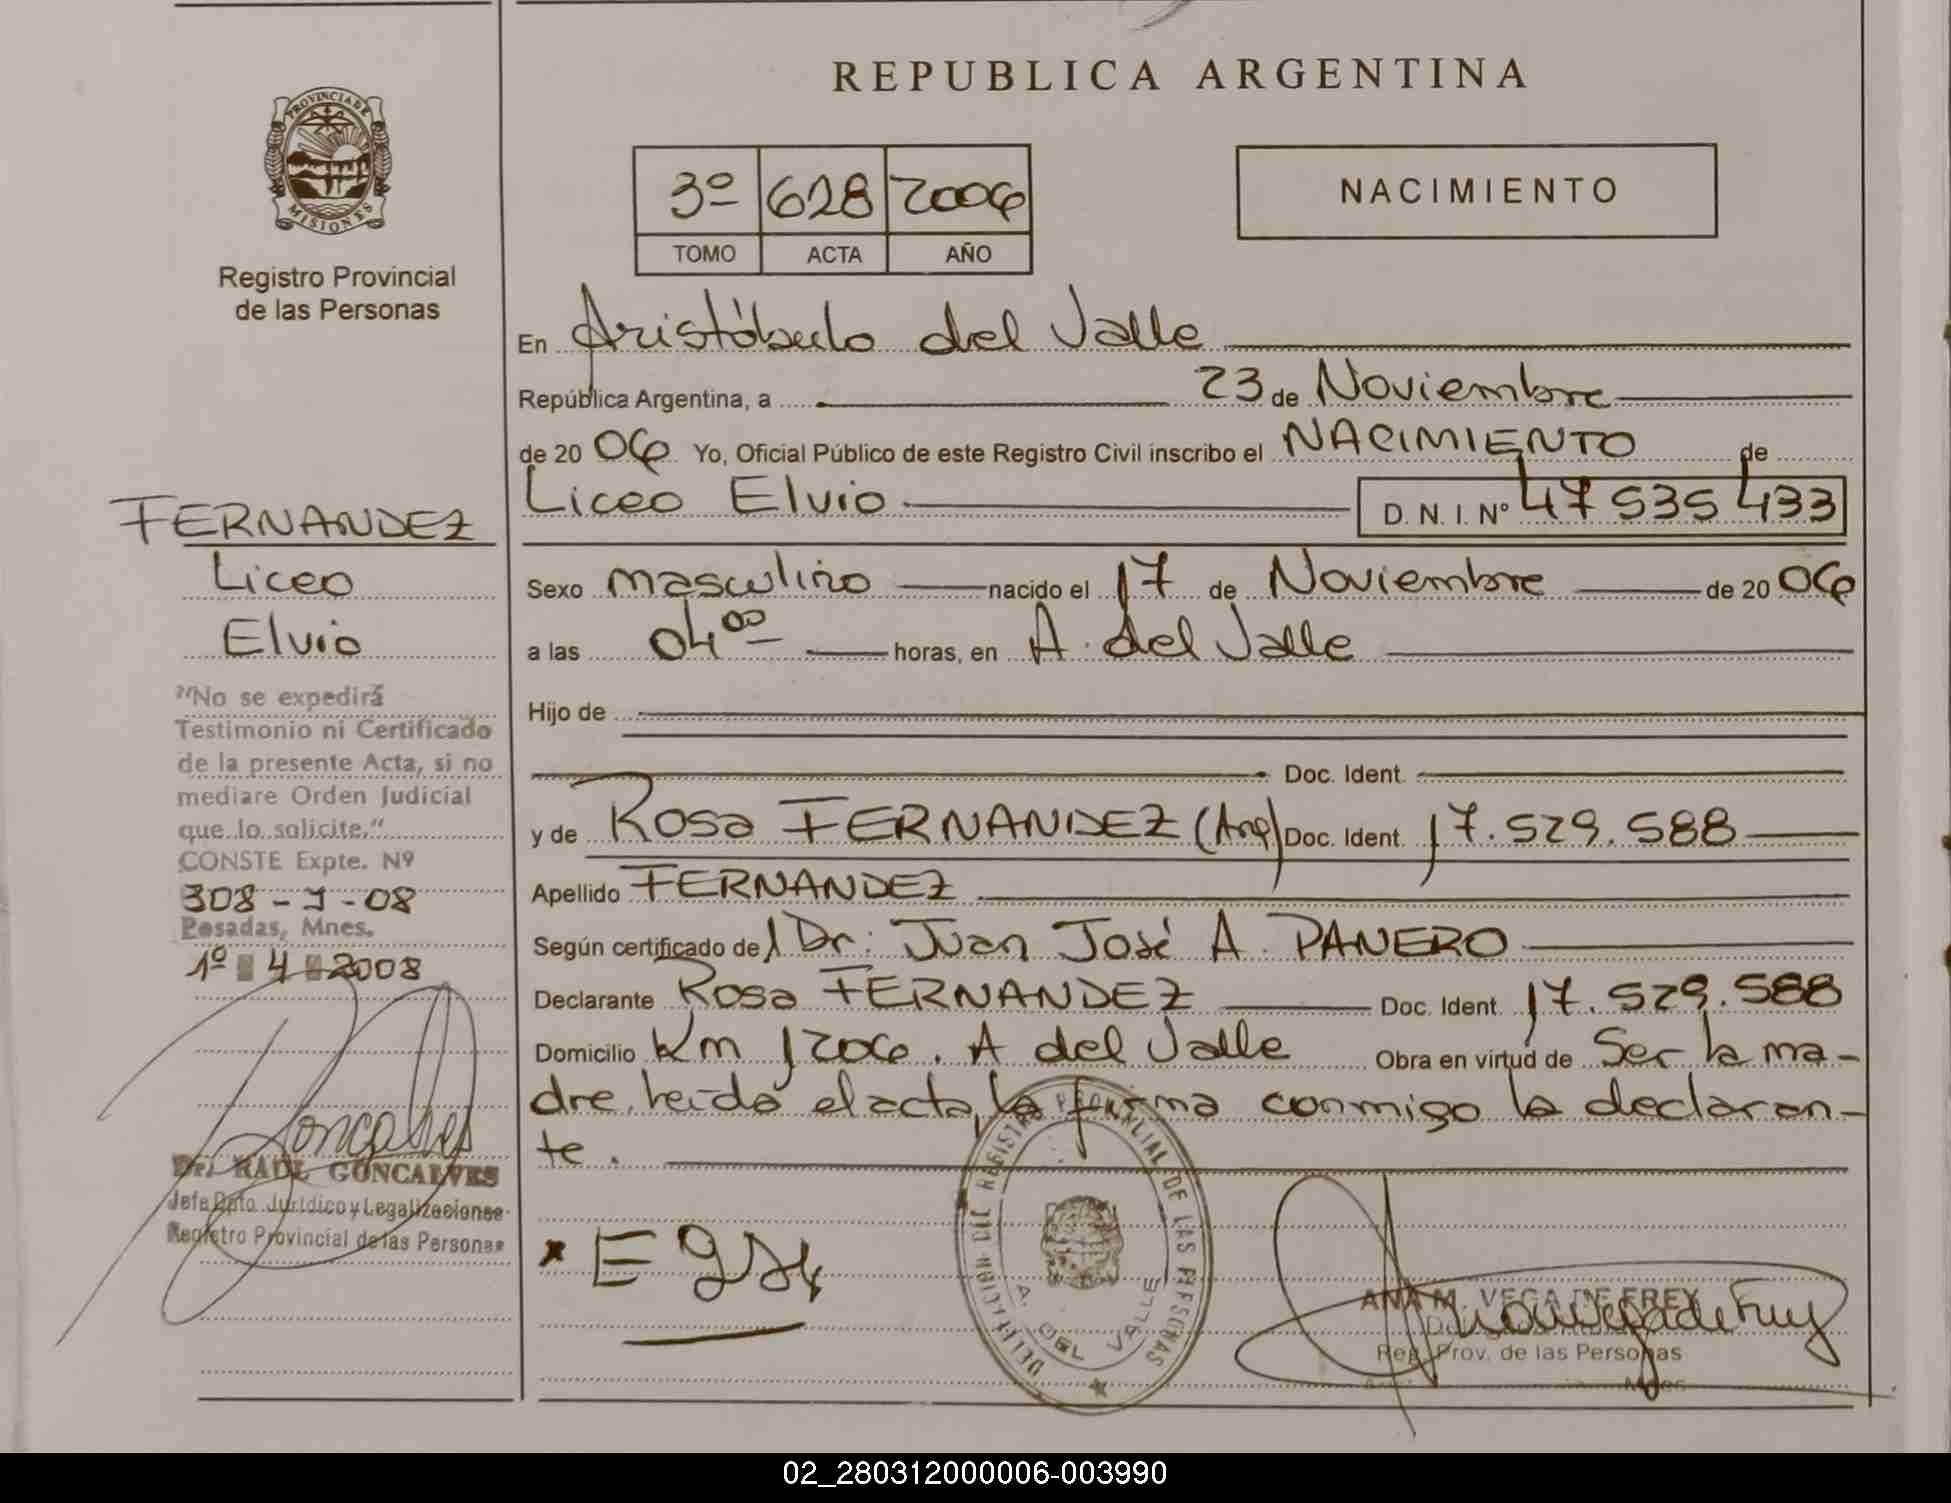 REPUBLICA ARGENTINA
PROVINCIA DE
MISIONES
Registro Provincial
de las Personas
3º 628 2006
TOMO ACTA AÑO
NACIMIENTO
En Aristóbulo del Valle
República Argentina, a 23 de Noviembre
de 2006 Yo, Oficial Público de este Registro Civil inscribo el NACIMIENTO de
Liceo Elvio D. N. I. Nº 47 535 433
Sexo masculino nacido el 17 de Noviembre de 2006
a las 04⁰⁰ horas, en A. del Valle
Hijo de
Doc. Ident.
y de Rosa FERNANDEZ (Arg) Doc. Ident. 17.529.588
Apellido FERNANDEZ
Según certificado del Dr: Juan José A. PANERO
Declarante Rosa FERNANDEZ Doc. Ident. 17.529.588
Domicilio Km 1206. A del Valle Obra en virtud de Ser la ma-
dre, leída el acta, la firma conmigo la declaran-
te.
FERNANDEZ
Liceo
Elvio
"No se expedirá
Testimonio ni Certificado
de la presente Acta, si no
mediare Orden Judicial
que lo solicite."
CONSTE Expte. Nº
308 - J - 08
Posadas, Mnes.
1º 4 2008
Goncalves
Dr. RAUL GONCALVES
Jefe Dpto. Jurídico y Legalizaciones
Registro Provincial de las Personas
DELEGACION DEL REGISTRO PROVINCIAL DE LAS PERSONAS
A. DEL VALLE
ANA M. VEGA DE FREY
Reg. Prov. de las Personas
02_280312000006-003990